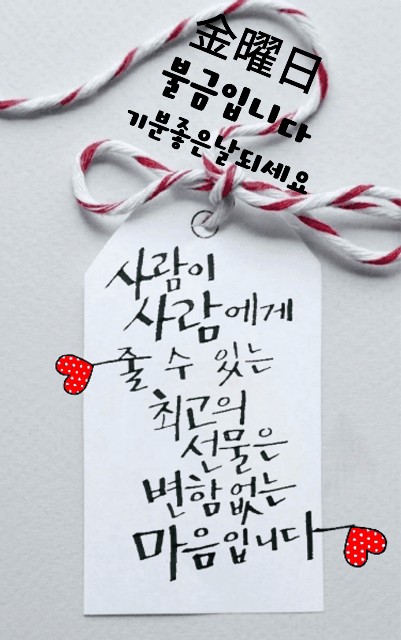 金曜日
불금입니다
기분좋은날되세요
사람이
사람에게
줄 수 있는
최고의
선물은
변함없는
마음입니다